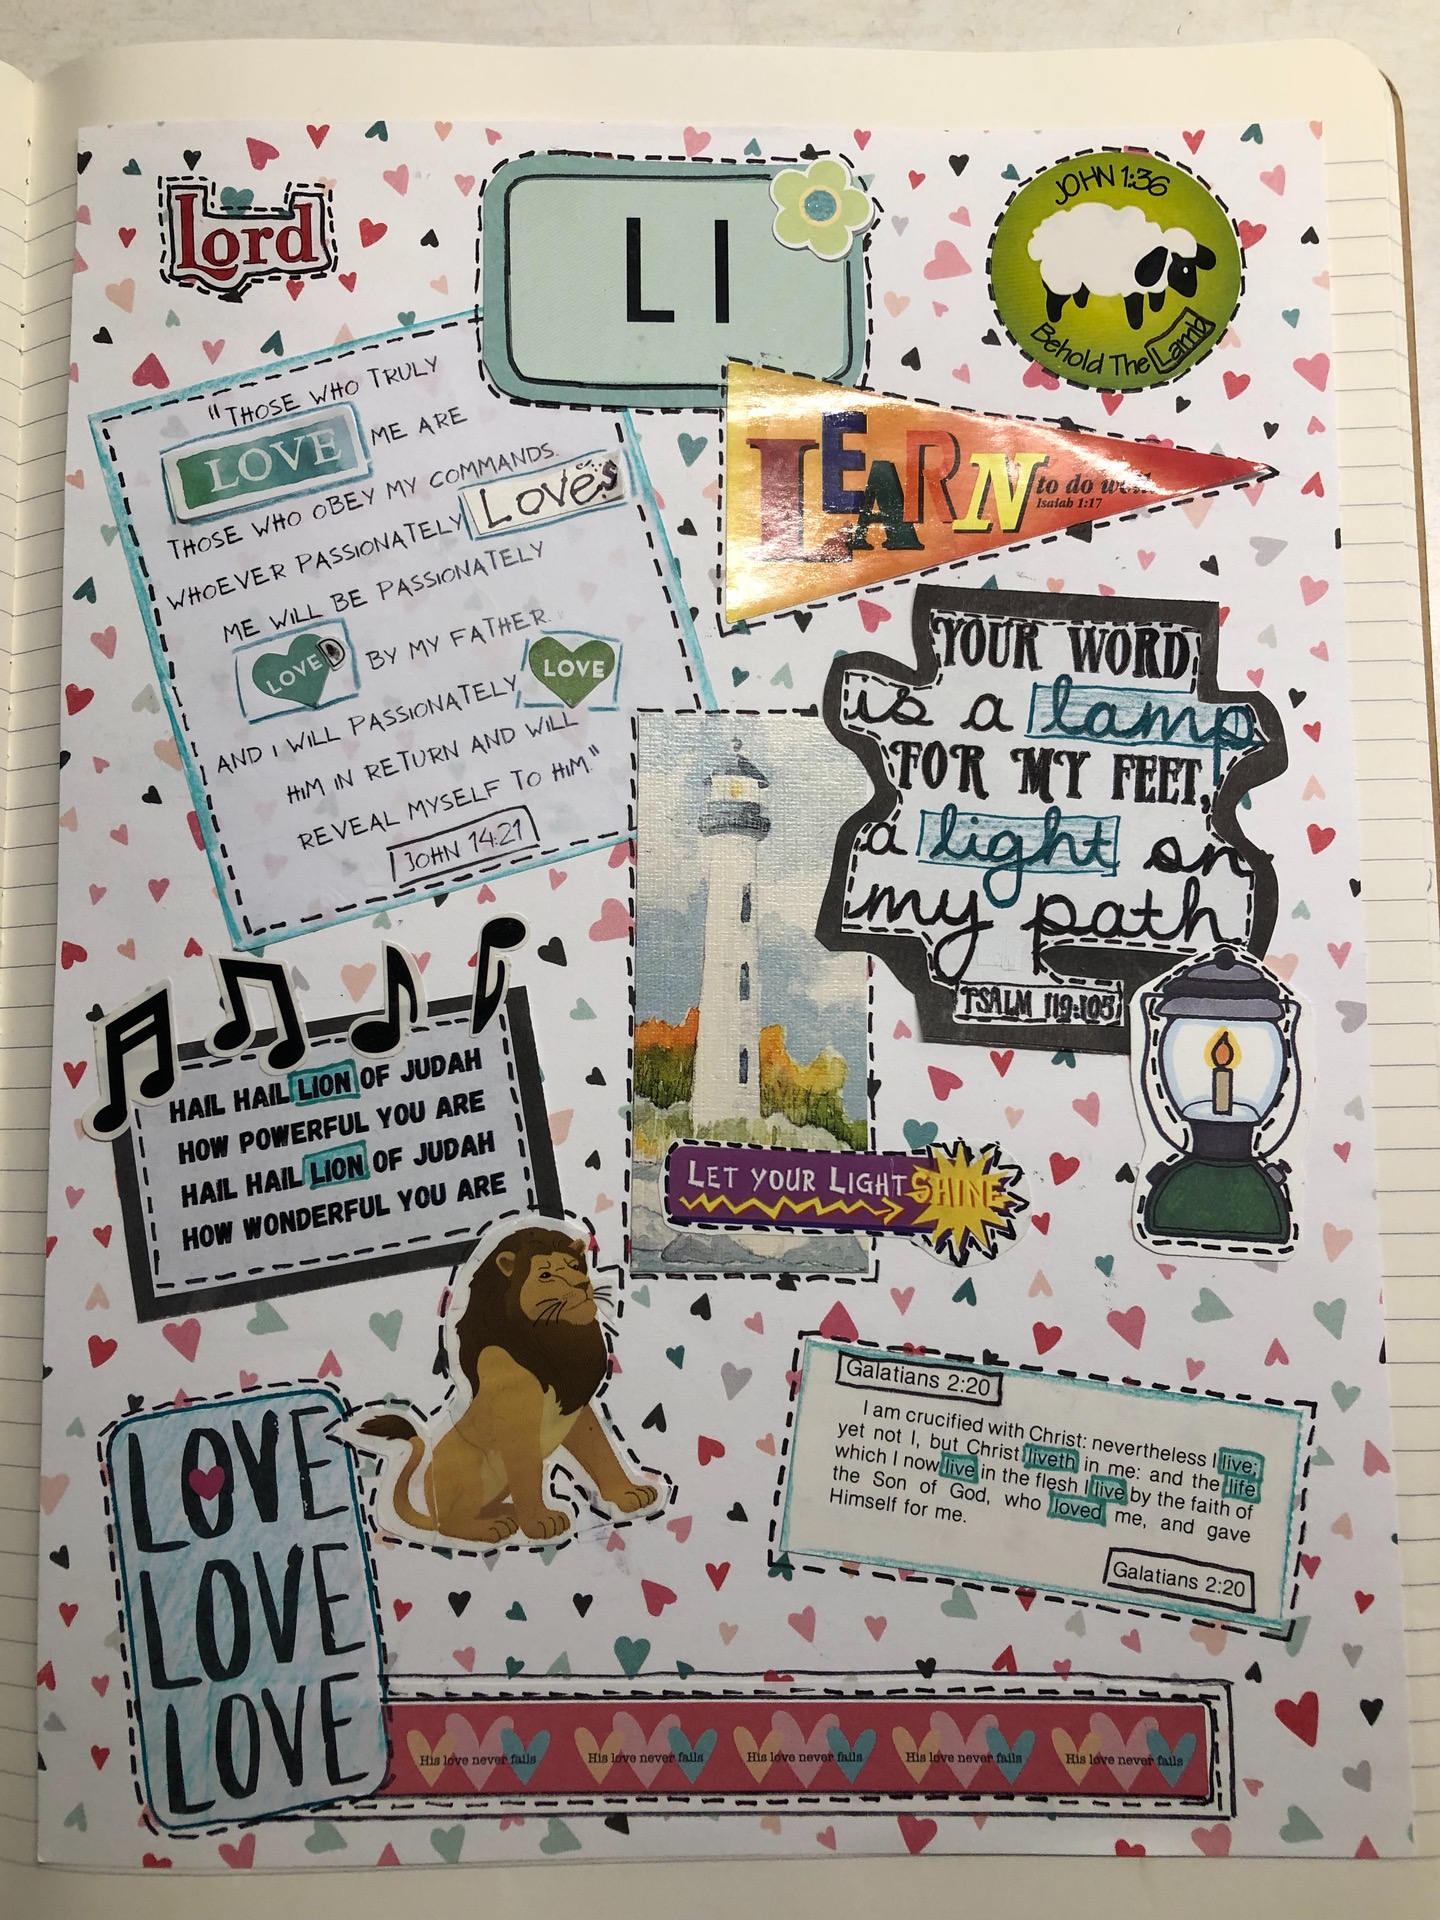 Lord
L l
JOHN 1:36
Behold The Lamb
"THOSE WHO TRULY
LOVE ME ARE
THOSE WHO OBEY MY COMMANDS.
WHOEVER PASSIONATELY Loves
ME WILL BE PASSIONATELY
LOVED BY MY FATHER.
AND I WILL PASSIONATELY LOVE
HIM IN RETURN AND WILL
REVEAL MYSELF TO HIM."
JOHN 14:21
LEARN to do
Isaiah 1:17
YOUR WORD
is a lamp
FOR MY FEET,
a light on
my path
PSALM 119:105
HAIL HAIL LION OF JUDAH
HOW POWERFUL YOU ARE
HAIL HAIL LION OF JUDAH
HOW WONDERFUL YOU ARE
LET YOUR LIGHT SHINE
Galatians 2:20
I am crucified with Christ: nevertheless I live;
yet not I, but Christ liveth in me: and the life
which I now live in the flesh I live by the faith of
the Son of God, who loved me, and gave
Himself for me.
Galatians 2:20
LOVE
LOVE
LOVE
His love never fails His love never fails His love never fails His love never fails His love never fails